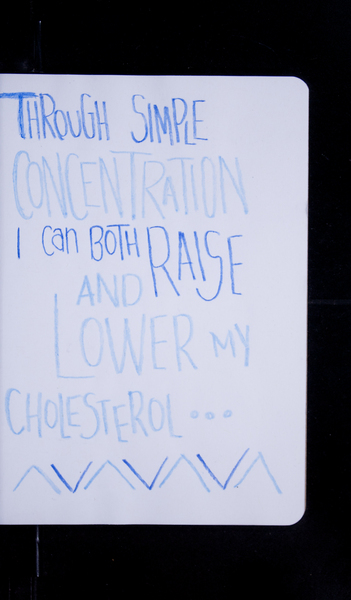 THROUGH SIMPLE
CONCENTRATION
I can BOTH RAISE
AND
LOWER MY
CHOLESTEROL...